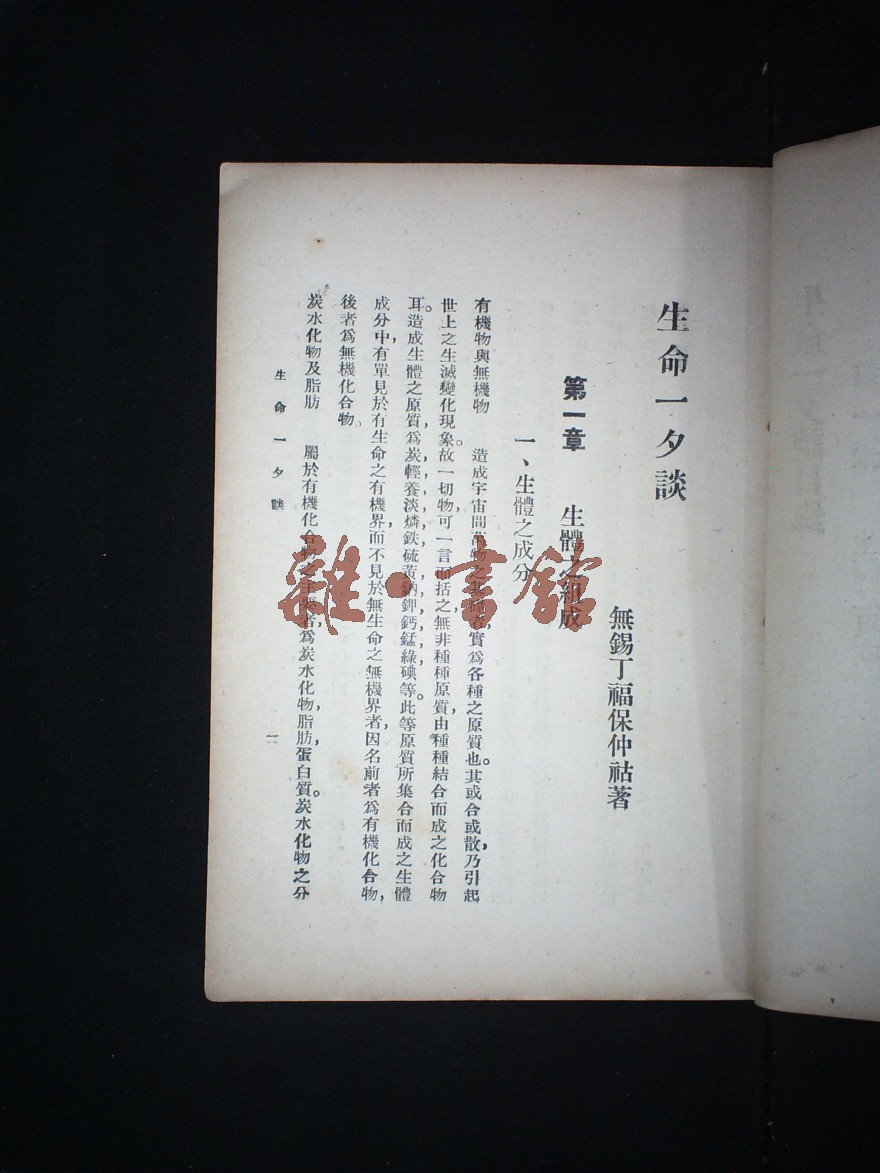 生命一夕談
無錫丁福保仲祜著
第一章　生體之組成
一、生體之成分
有機物與無機物　造成宇宙間萬物之者，實爲各種之原質也。其或合或散，乃引起
世上之生滅變化現象。故一切物可一言而括之，無非種種原質，由種種結合而成之化合物
耳。造成生體之原質，爲炭，輕，養，淡，燐，鉄，硫黃，鈉，鉀，鈣，錳，綠，碘等。此等原質所集合而成之生體
成分中，有單見於有生命之有機界，而不見於無生命之無機界者，因名前者爲有機化合物，
後者爲無機化合物。
炭水化物及脂肪　屬於有機化合物之主要者，爲炭水化物，脂肪，蛋白質。炭水化物之分
生命一夕談
一
雜·書館